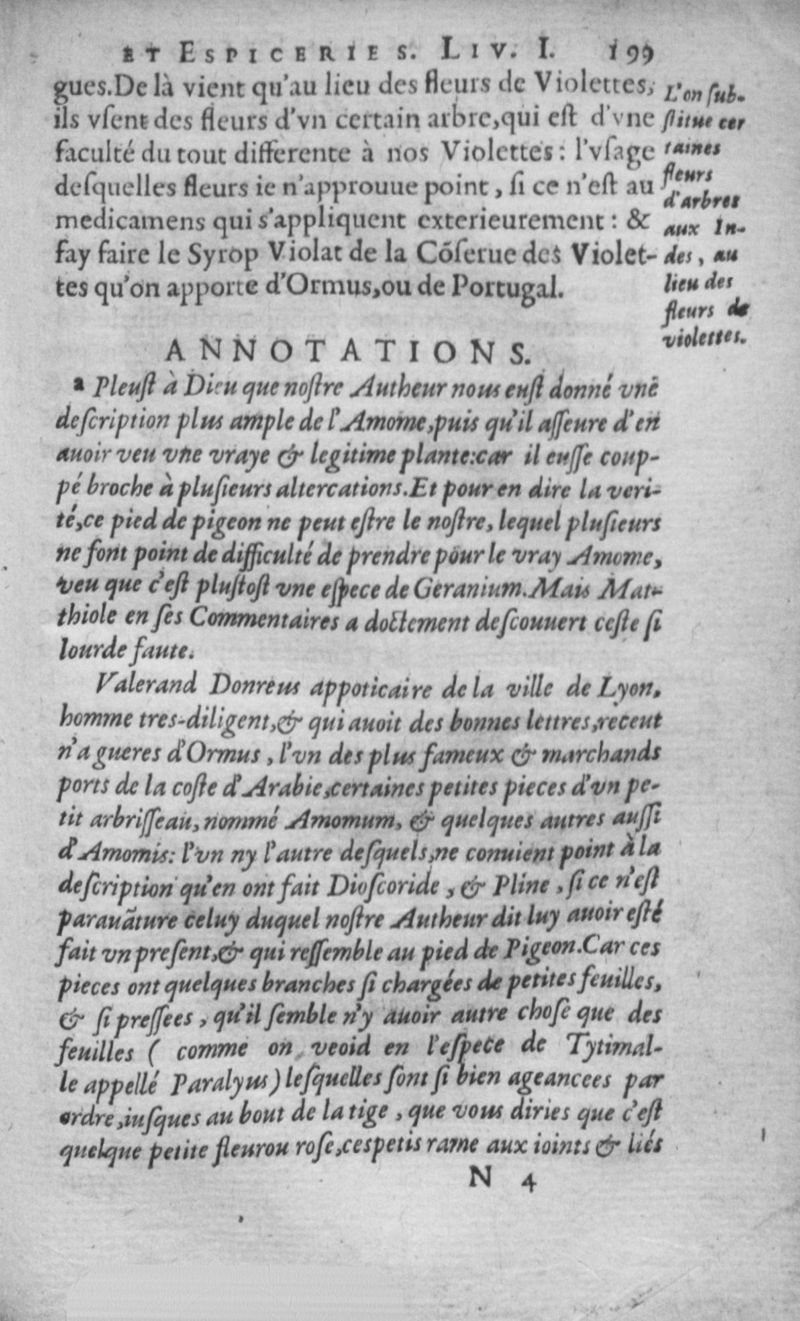 ET ESPICERIES. LIV. I. 199
gues.De là vient qu'au lieu des fleurs de Violettes,
ils vſent des fleurs d'vn certain arbre,qui eſt d'vne
faculté du tout differente à nos Violettes : l'vſage
deſquelles fleurs ie n'approuue point, ſi ce n'eſt au
medicamens qui s'appliquent exterieurement : &
fay faire le Syrop Violat de la Cõſerue des Violet-
tes qu'on apporte d'Ormus,ou de Portugal.
L'on ſub-
ſtitue cer
taines
fleurs
d'arbres
aux In-
des, au
lieu des
fleurs de
violettes.
ANNOTATIONS.
a Pleuſt à Dieu que noſtre Autheur nous euſt donné vne
deſcription plus ample de l'Amome,puis qu'il aſſeure d'en
auoir veu vne vraye & legitime plante:car il euſſe coup-
pé broche à pluſieurs altercations.Et pour en dire la veri-
té,ce pied de pigeon ne peut eſtre le noſtre, lequel pluſieurs
ne font point de difficulté de prendre pour le vray Amome,
veu que c'eſt pluſtoſt vne eſpece de Geranium.Mais Mat-
thiole en ſes Commentaires a doctement deſcouuert ceſte ſi
lourde faute.
Valerand Donreus appoticaire de la ville de Lyon,
homme tres-diligent,& qui auoit des bonnes lettres,receut
n'a gueres d'Ormus, l'vn des plus fameux & marchands
ports de la coſte d'Arabie,certaines petites pieces d'vn pe-
tit arbriſſeau, nommé Amomum, & quelques autres auſſi
d'Amomis: l'vn ny l'autre deſquels,ne conuient point à la
deſcription qu'en ont fait Dioſcoride, & Pline, ſi ce n'eſt
parauãture celuy duquel noſtre Autheur dit luy auoir eſté
fait vn preſent,& qui reſſemble au pied de Pigeon.Car ces
pieces ont quelques branches ſi chargées de petites feuilles,
& ſi preſſees, qu'il ſemble n'y auoir autre choſe que des
feuilles ( comme on veoid en l'eſpece de Tytimal-
le appellé Paralyus) leſquelles ſont ſi bien ageancees par
ordre,iuſques au bout de la tige, que vous diries que c'eſt
quelque petite fleurou roſe,ces petis rame aux ioints & liés
N 4